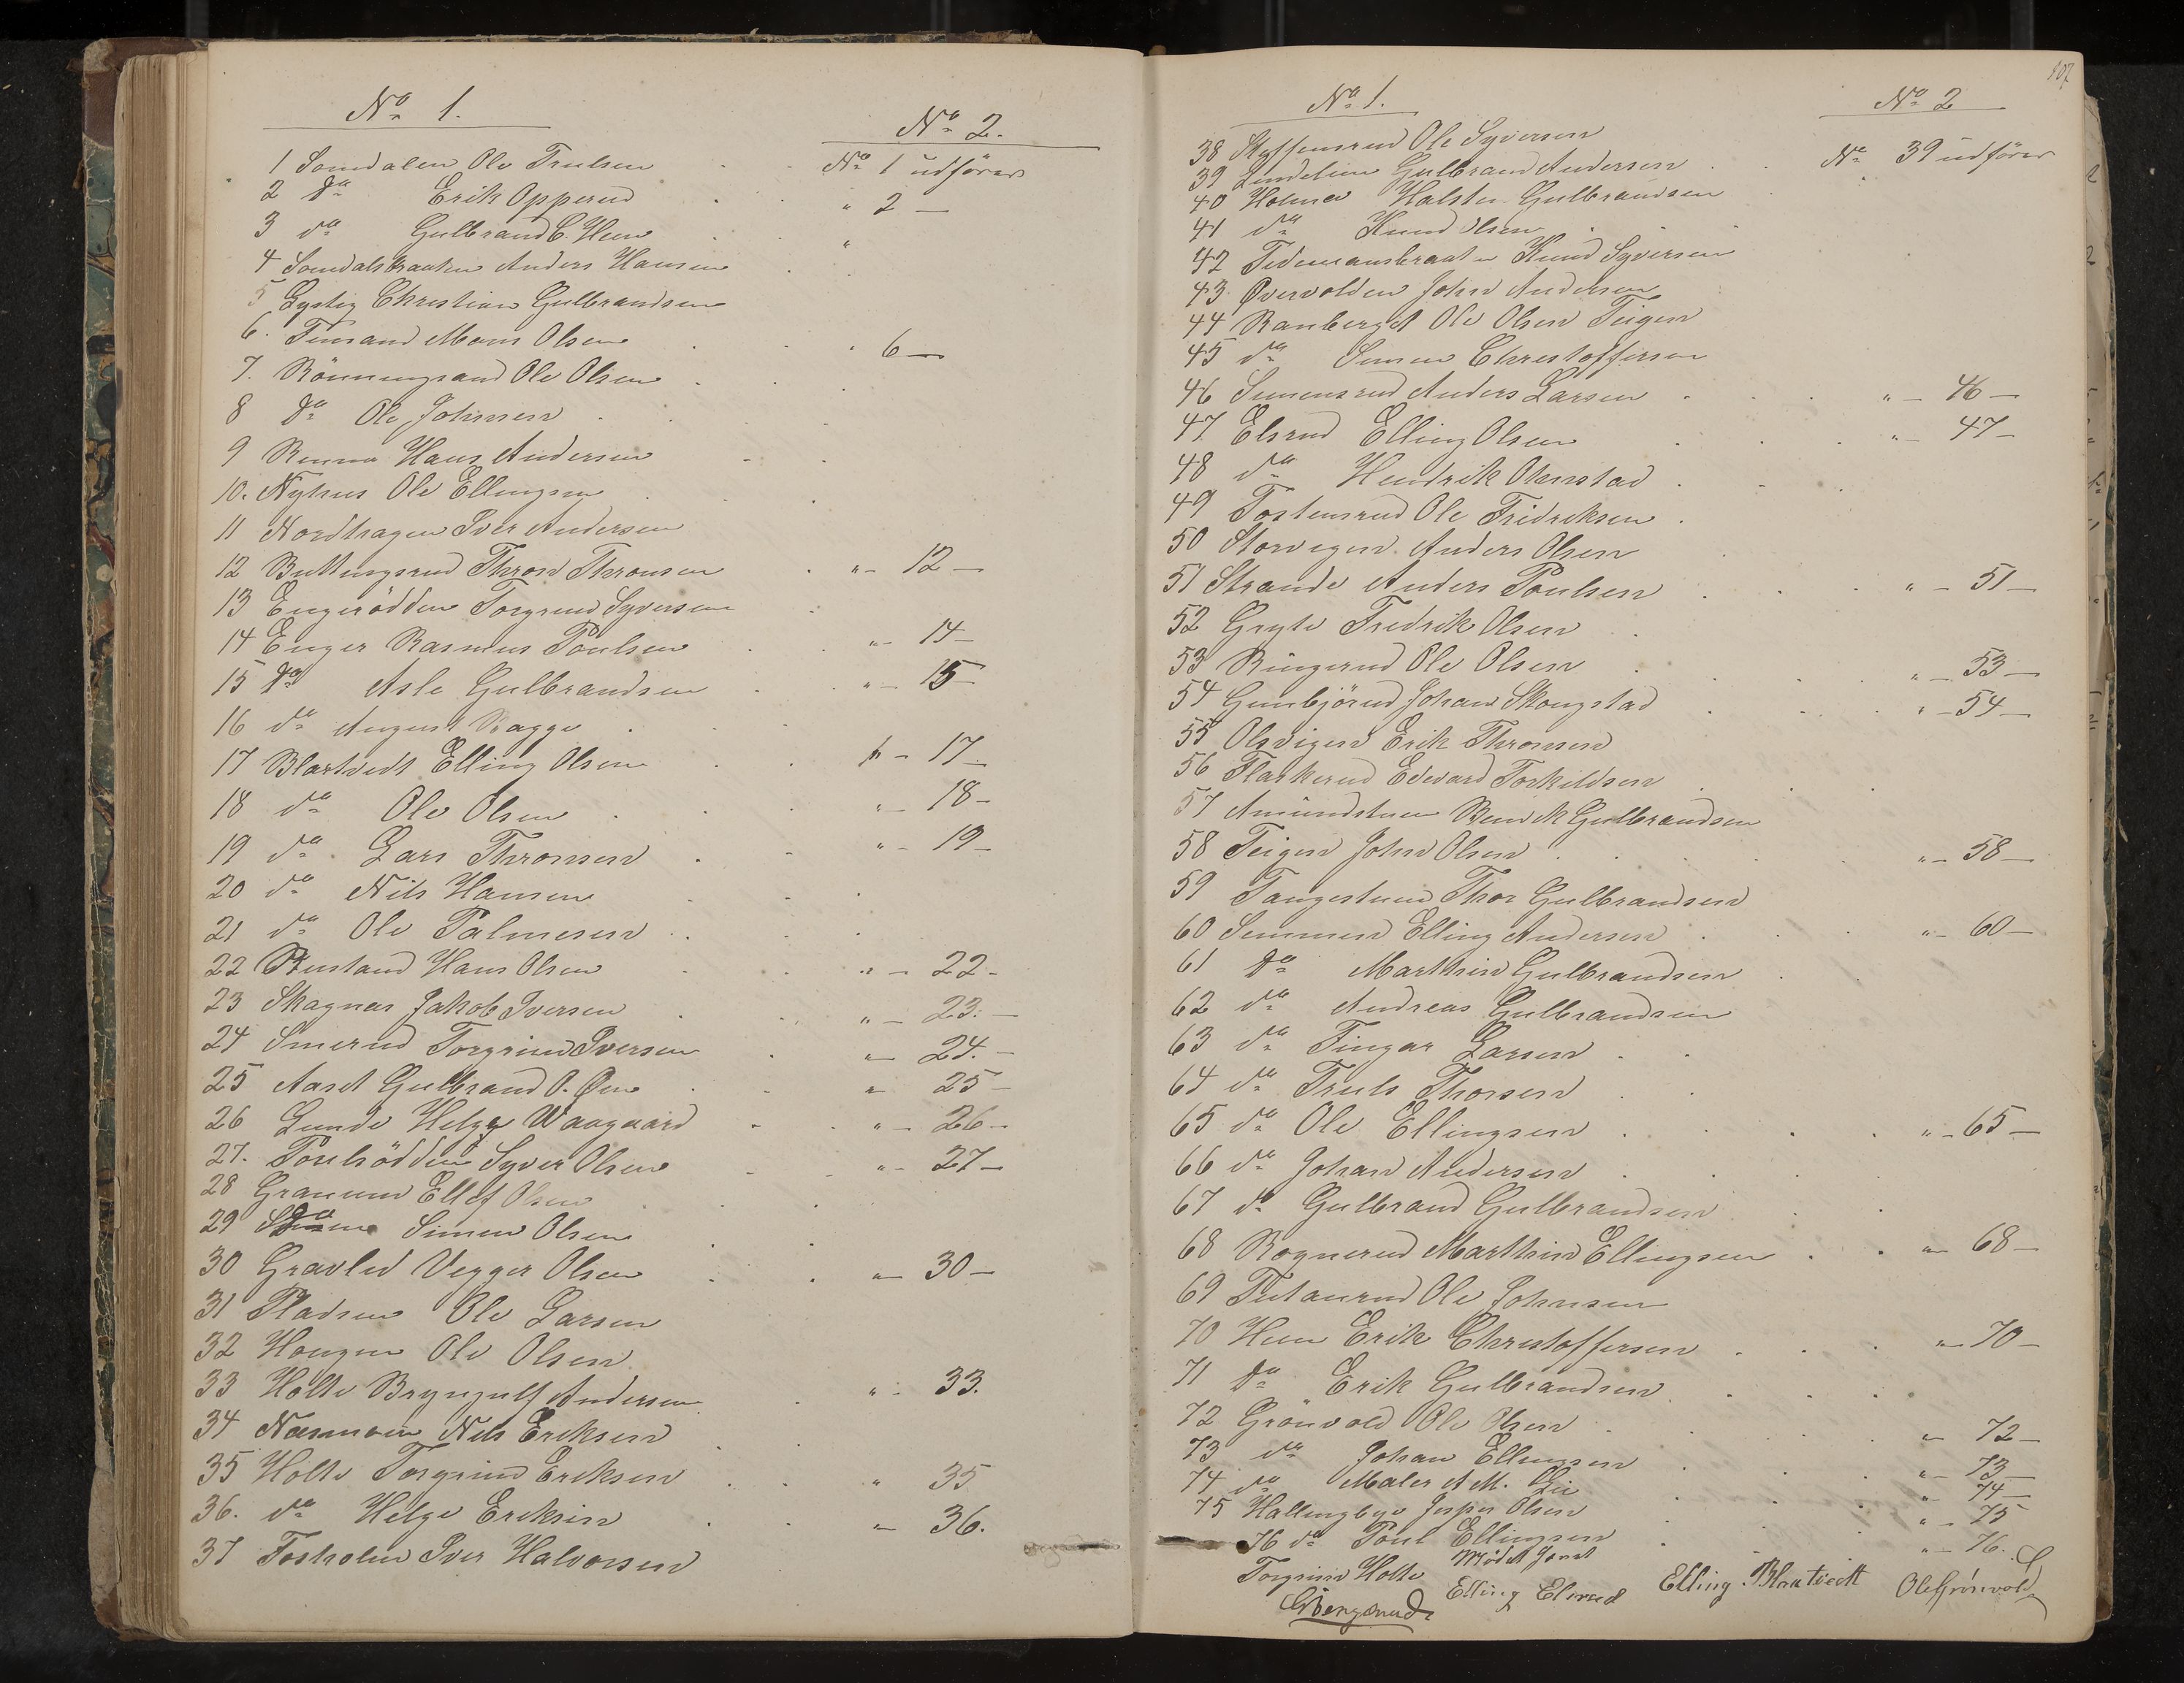 No 1.
No 2.
1 Somdalen Ole Trulsen No 1 udförer
2 do Erik Opperud " 2 —
3 do Gulbrand C. Heen "
4 Somdalsbraaten Anders Hansen
5 Lystig Christian Gulbrandsen
6. Finsand Mons Olsen 6 —
7. Rönningsand Ole Olsen
8 do Ole Johnsen
9 Renna Hans Andersen
10. Nyhus Ole Ellingsen
11 Nordhagen Iver Andersen
12 Buttingsrud Thron Thronsen " — 12 —
13 Engerödden Torgrund Syversen
14 Enger Rasmus Poulsen " — 14 —
15 do Asle Gulbrandsen " — 15
16 do August Bagge
17 Blaktvedt Elling Olsen — 17 —
18 do Ole Olsen " — 18 —
19 do Lars Thronsen " — 19 —
20 do Nils Hansen
21 do Ole Palmesen
22 Rustand Hans Olsen " — 22 —
23 Skagnæs Jakob Iversen " — 23. —
24 Smerud Torgrim Iversen " — 24. —
25 Aaset Gulbrand O. Øen " 25 —
26 Lunde Helge Waagaard " — 26 —
27. Poulsödden Syver Olsen " — 27 —
28 Granum Ellef Olsen
29 do Simen Olsen
30 Gravlid Vegger Olsen " — 30 —
31 Pladsen Ole Larsen
32 Hougen Ole Olsen
33 Holte Bryngulf Andersen " — 33.
34 Næsmoen Nils Eriksen
35 Holte Torgrim Eriksen " 35
36. do Helge Eriksen " — 36.
37 Fosholm Iver Halvorsen
107
No 1.
No 2
38 Steffensrud Ole Syversen
39 Lindelien Gulbrand Andersen No 39 udförer
40 Holma Halsten Gulbrandsen
41 do Knud Olsen
42 Tidemansbraaten Knud Syversen
43 Øvervolden John Andersen
44 Ranberget Ole Olsen Teigen
45 do Simen Christoffersen
46 Simensrud Anders Larsen " — 46 —
47 Elsrud Elling Olsen " — 47 —
48 do Hendrik Olmstad
49 Tostensrud Ole Fridriksen
50 Storvigen Anders Olsen
51 Strande Anders Poulsen " — 51 —
52 Gryte Fredrik Olsen
53 Ringerud Ole Olsen " — 53 —
54 Gunbjörud Johan Skougstad " — 54 —
55 Olsvigen Erik Thronsen
56 Flaskerud Edevard Torkildsen
57 Amundstuen Bendik Gulbrandsen
58 Teigen John Olsen " — 58 —
59 Tangestuen Thor Gulbrandsen
60 Semmen Elling Andersen " — 60 —
61 do Marthin Gulbrandsen
62 do Andreas Gulbrandsen
63 do Fingar Larsen
64 do Truls Thorsen
65 do Ole Ellingsen " — 65 —
66 do Johan Andersen
67 do Gulbrand Gulbrandsen
68 Rognerud Marthin Ellingsen " — 68 —
69 Tutanrud Ole Johnsen
70 Heen Erik Christoffersen " — 70 —
71 do Erik Gulbrandsen
72 Grönvold Ole Olsen " — 72 —
73 do Johan Ellingsen " — 73 —
74 do Maler A M. Lie " — 74 —
75 Hallingby Jesper Olsen " — 75
76 do Poul Ellingsen " — 76.
Mödet Hævet
Torgrim Holte Elling Elsrud Elling Blaktvedt Ole Grönvold
GBergsrud